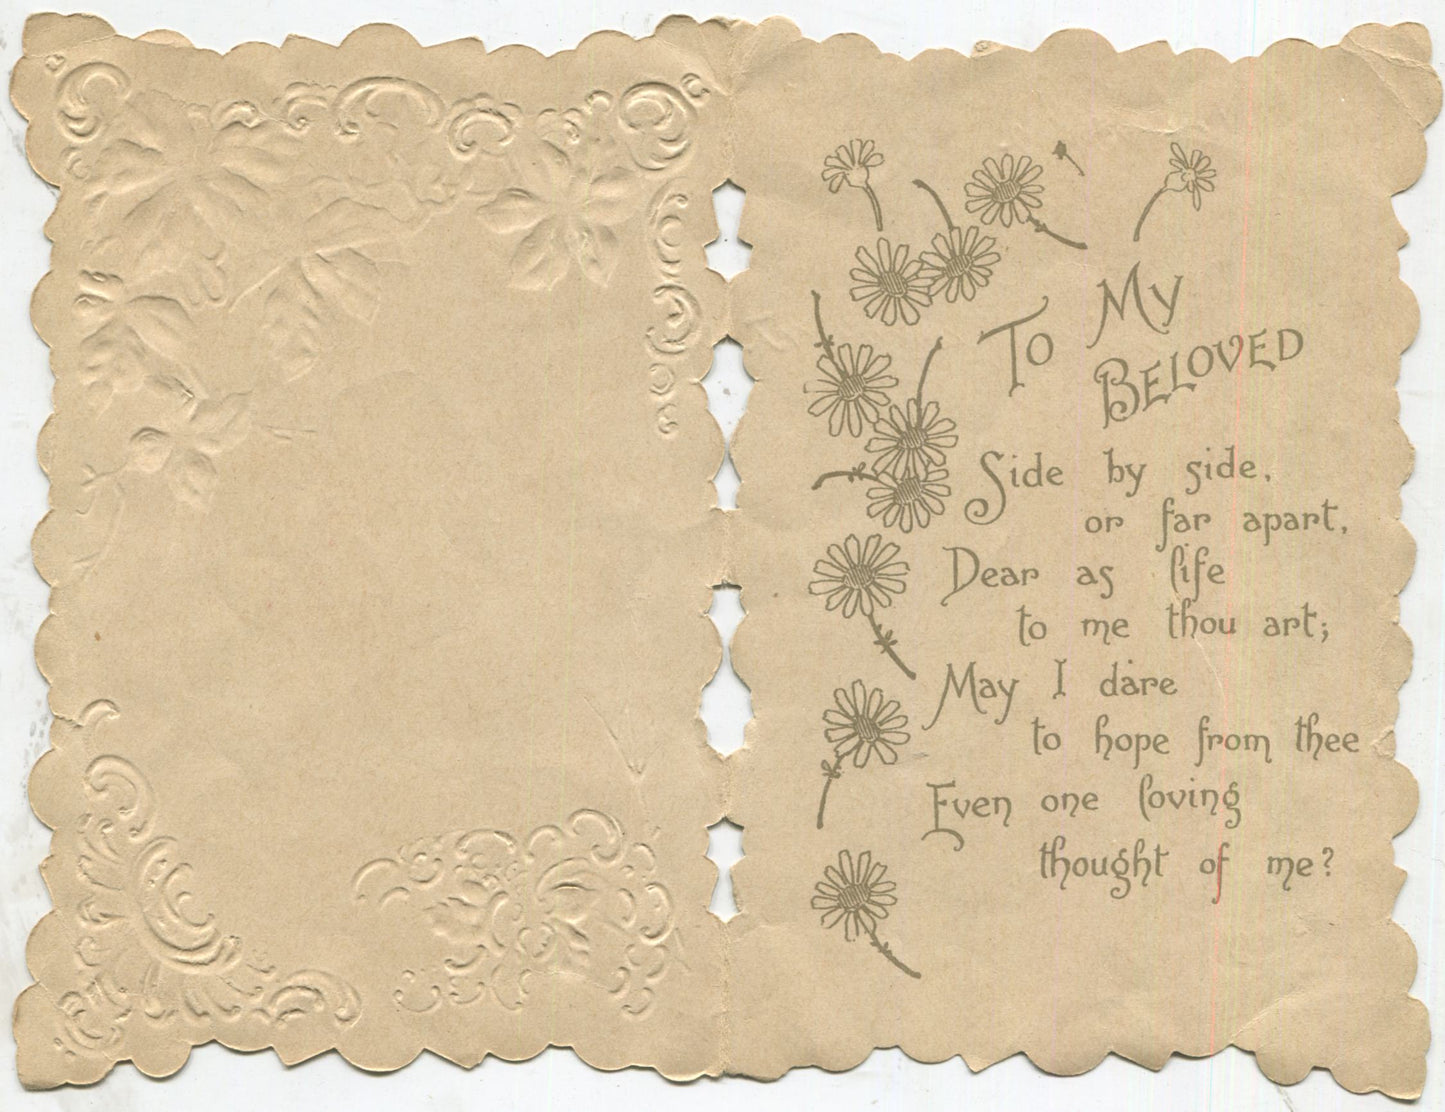 To My
Beloved
Side by side,
or far apart,
Dear as life
to me thou art;
May I dare
to hope from thee
Even one loving
thought of me?